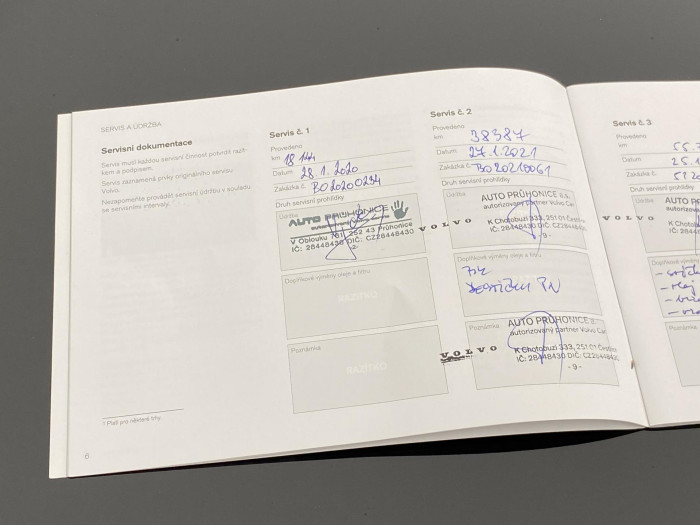 SERVIS A ÚDRŽBA
Servisní dokumentace
Servis musí každou servisní činnost potvrdit razít-
kem a podpisem.
Servis zaznamená prvky originálního servisu
Volvo.
Nezapomeňte provádět servisní údržbu v souladu
se servisními intervaly.
1 Platí pro některé trhy.
6
Servis č. 1
Provedeno
km 18 144
Datum 28.1.2020
Zakázka č. BO20200234
Druh servisní prohlídky
Údržba
AUTO PRŮHONICE
V Oblouku 731, 252 43 Průhonice
IČ: 28448430 DIČ: CZ28448430
-2-
Doplňkové výměny oleje a filtru
RAZÍTKO
Poznámka
RAZÍTKO
Servis č. 2
Provedeno
km 38387
Datum 27.1.2021
Zakázka č. BO20210061
Druh servisní prohlídky
Údržba
AUTO PRŮHONICE a.s.
autorizovaný partner Volvo Car
VOLVO
K Chotobuzi 333, 251 01 Čestlice
IČ: 28448430 DIČ: CZ28448430
-9-
Doplňkové výměny oleje a filtru
Poznámka
AUTO PRŮHONICE a.s.
autorizovaný partner Volvo Car
VOLVO
K Chotobuzi 333, 251 01 Čestlice
IČ: 28448430 DIČ: CZ28448430
-9-
Servis č. 3
Provedeno
km
Datum
Zakázka č.
Druh servisní prohlídky
Údržba
VOLVO
Doplňkové výměny
Poznámka